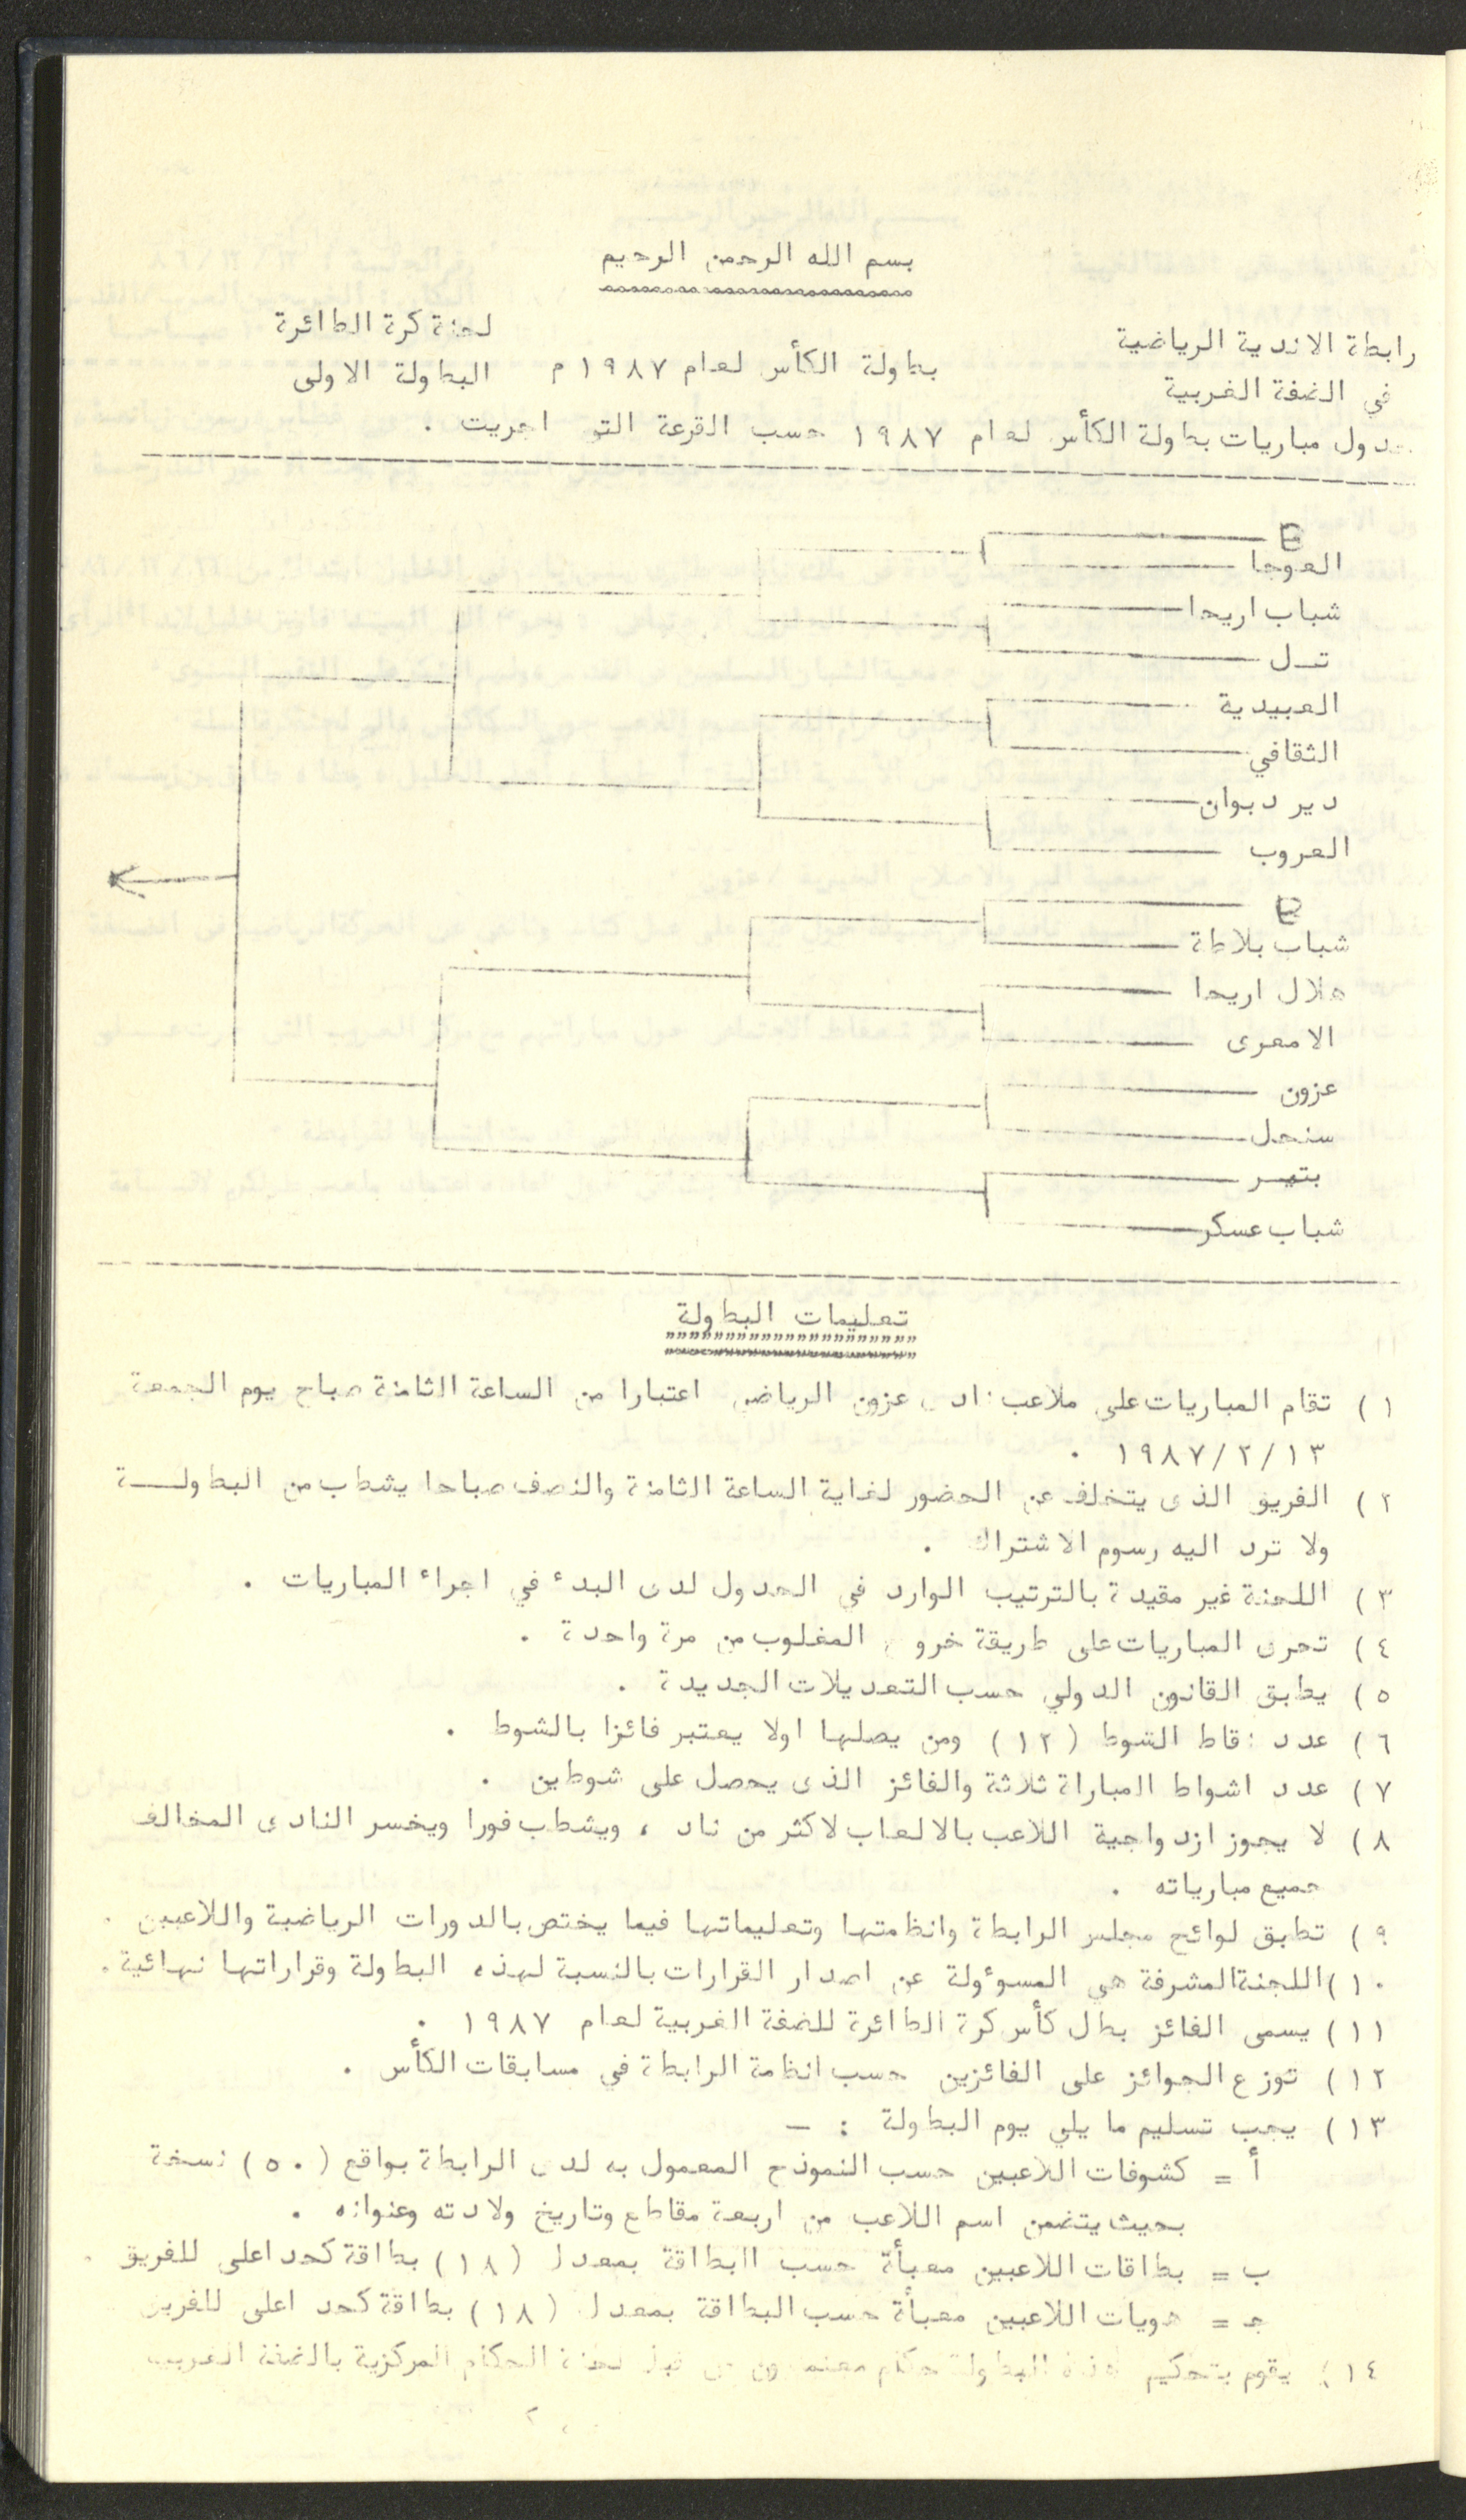 بسم الله الرحمن الرحيم
رابطة الاندية الرياضية
لجنة كرة الطائرة
في الضفة الغربية
بطولة الكأس لعام ١٩٨٧ م
البطولة الاولى
جدول مباريات بطولة الكأس لعام ١٩٨٧ حسب القرعة التي اجريت .
E
العوجا
شباب اريحا
تل
العبيدية
الثقافي
دير دبوان
العروب
E
شباب بلاطة
هلال اريحا
الامعرى
عزون
سنجل
بتير
شباب عسكر
تعليمات البطولة
١ ) تقام المباريات على ملاعب نادي عزون الرياضي اعتبارا من الساعة الثامنة صباح يوم الجمعة
١٣/٢/١٩٨٧ .
٢ ) الفريق الذى يتخلف عن الحضور لغاية الساعة الثامنة والنصف صباحا يشطب من البطولـــة
ولا ترد اليه رسوم الاشتراك .
٣ ) اللجنة غير مقيدة بالترتيب الوارد في الجدول لدى البدء في اجراء المباريات .
٤ ) تجرى المباريات على طريقة خروج المغلوب من مرة واحدة .
٥ ) يطبق القانون الدولي حسب التعديلات الجديدة .
٦ ) عدد نقاط الشوط ( ١٢ ) ومن يصلها اولا يعتبر فائزا بالشوط .
٧ ) عدد اشواط المباراة ثلاثة والفائز الذى يحصل على شوطين .
٨ ) لا يجوز ازدواجية اللاعب بالالعاب لاكثر من ناد ، ويشطب فورا ويخسر النادى المخالف
جميع مبارياته .
٩ ) تطبق لوائح مجلس الرابطة وانظمتها وتعليماتها فيما يختص بالدورات الرياضية واللاعبين .
١٠ )اللجنةالمشرفة هي المسوءولة عن اصدار القرارات بالنسبة لهذه البطولة وقراراتها نهائية .
١١ ) يسمى الفائز بطل كأس كرة الطائرة للضفة الغربية لعام ١٩٨٧ .
١٢ ) توزع الجوائز على الفائزين حسب انظمة الرابطة في مسابقات الكأس .
١٣ ) يجب تسليم ما يلي يوم البطولة : -
أ = كشوفات اللاعبين حسب النموذج المعمول به لدى الرابطة بواقع ( ٥٠ ) نسخة
بحيث يتضمن اسم اللاعب من اربعة مقاطع وتاريخ ولادته وعنوانه .
ب = بطاقات اللاعبين معبأة حسب البطاقة بمعدل ( ١٨ ) بطاقة كحد اعلى للفريق .
جـ = هويات اللاعبين معبأة حسب البطاقة بمعدل ( ١٨ ) بطاقة كحد اعلى للفريق
١٤ ) يقوم بتحكيم هذه البطولة حكام معتمدون من قبل لجنة الحكام المركزية بالضفة الغربية